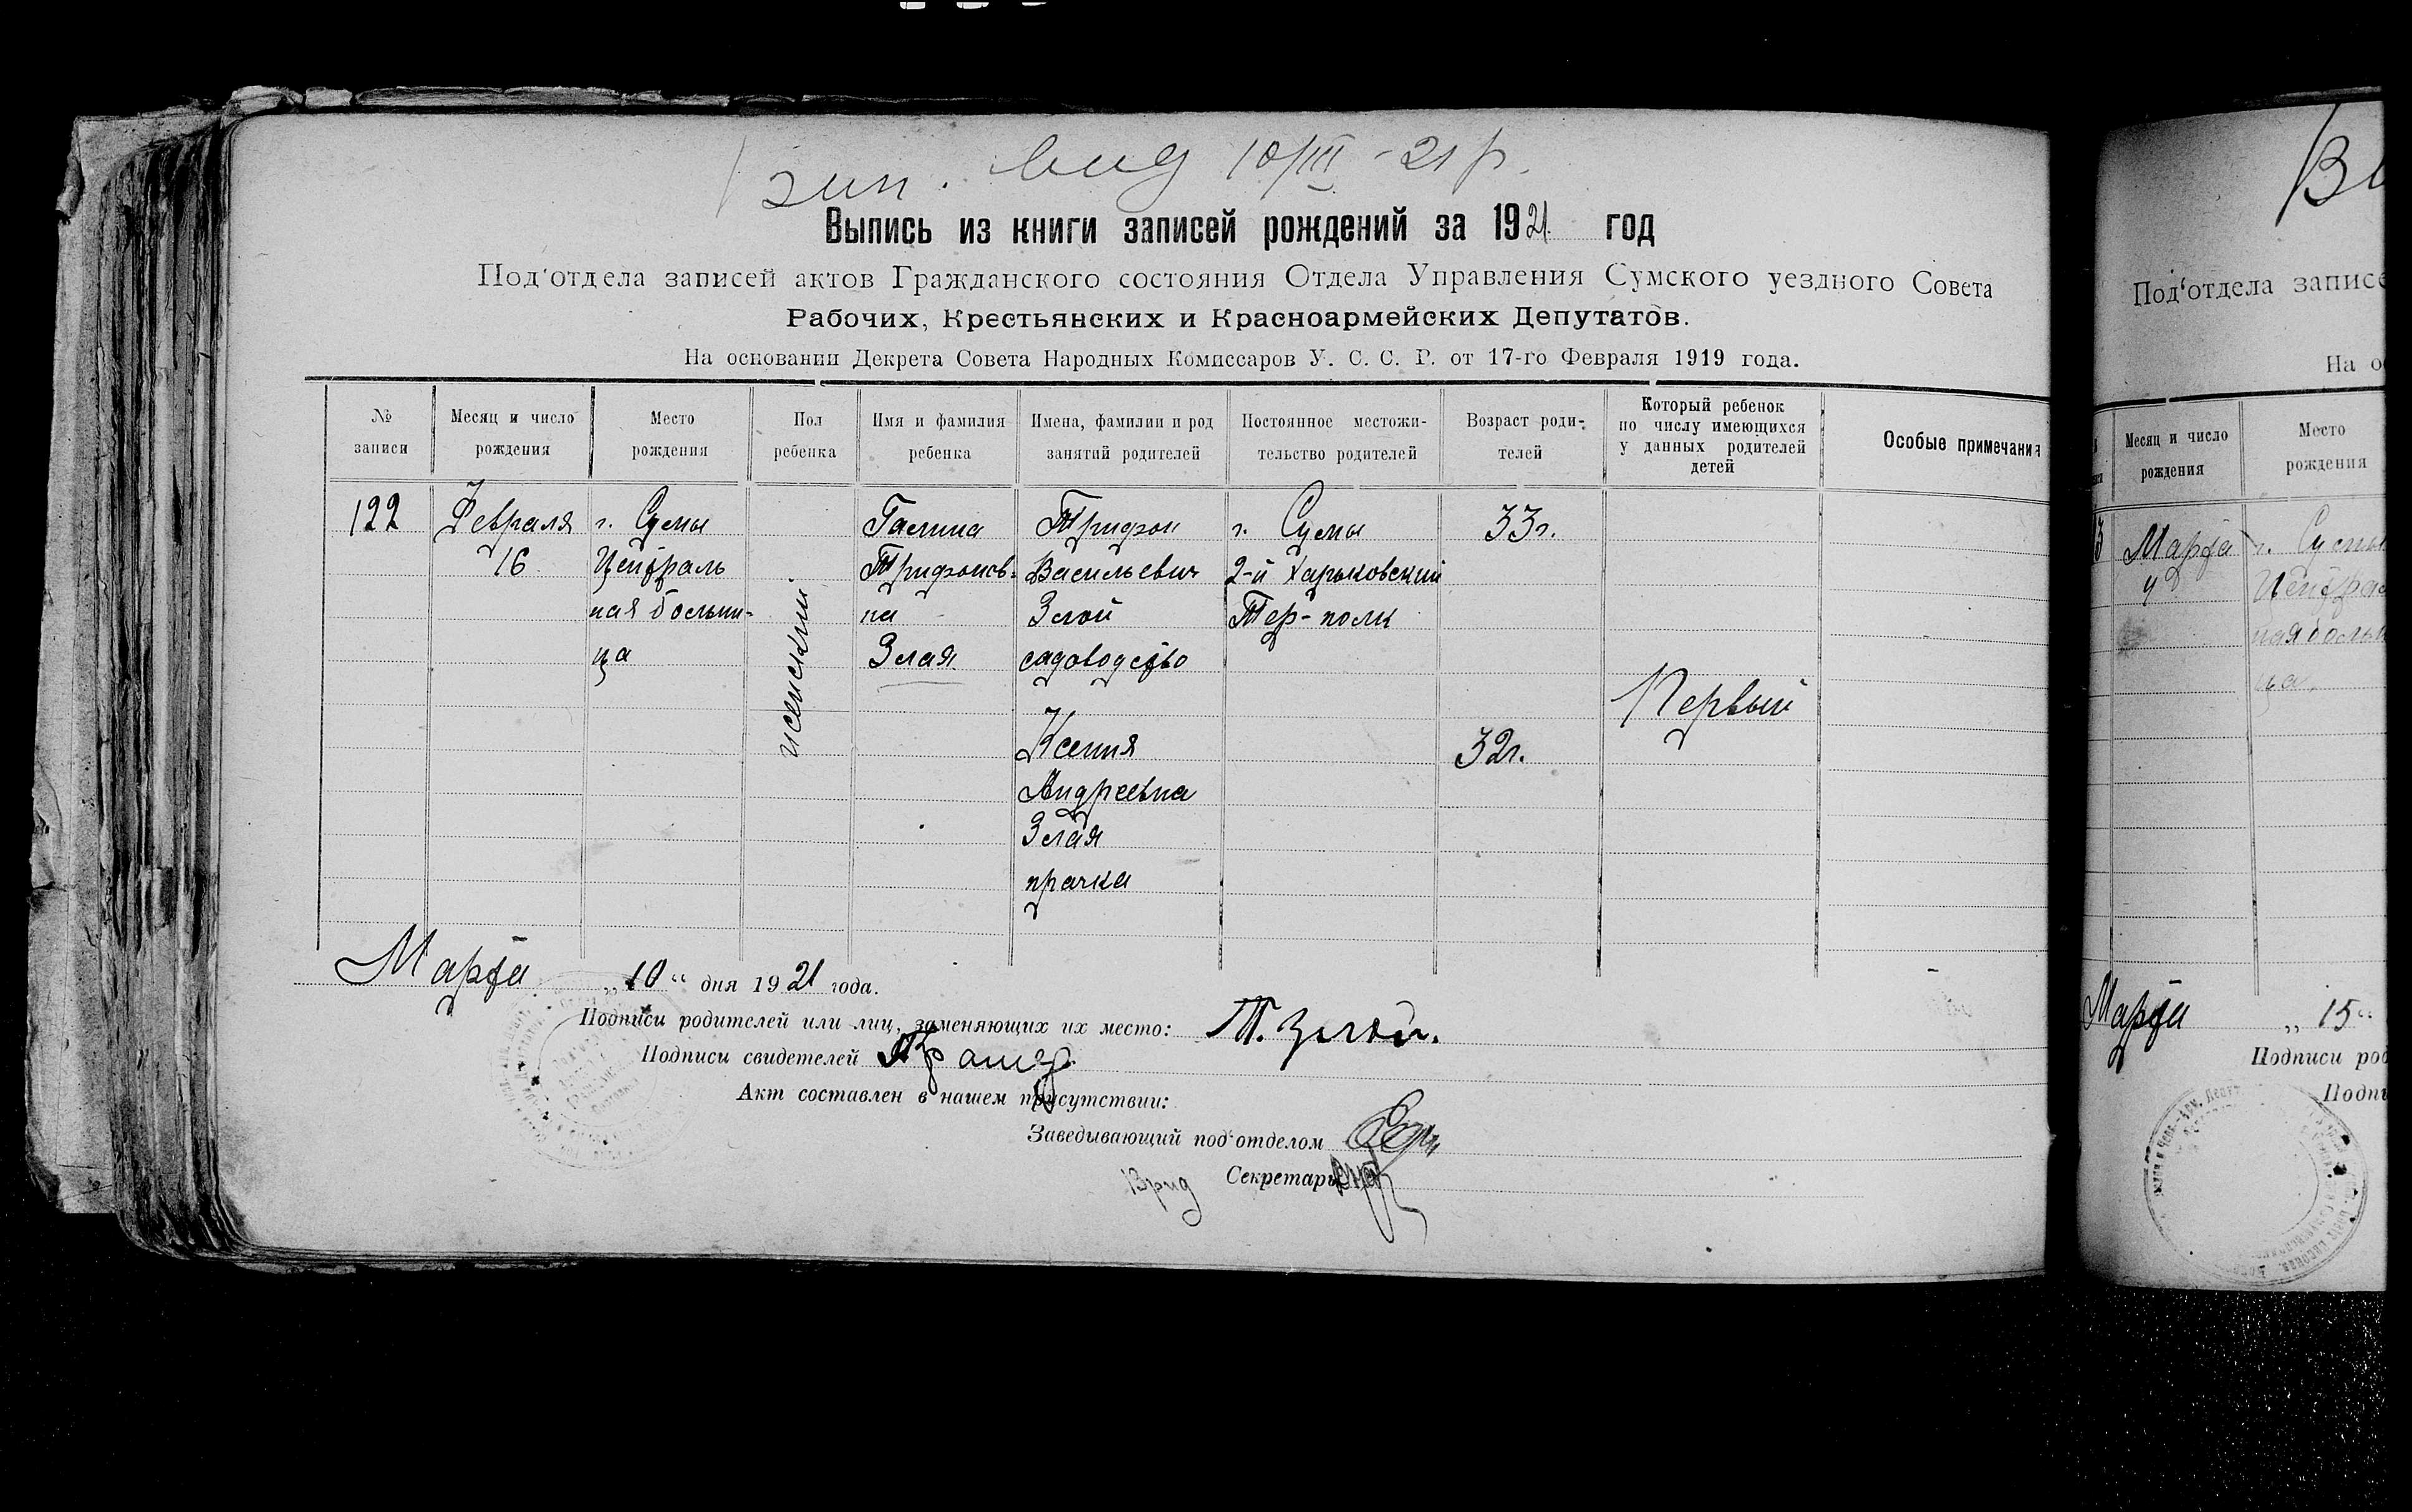 зип. вид 10/III - 21 р.
Выпись из книги записей рождений за 1921 год
Под‘отдела записей актов Гражданского состояния Отдела Управления Сумского уездного Совета
Рабочих, Крестьянских и Красноармейских Депутатов.
На основании Декрета Совета Народных Комиссаров У. С. С. Р. от 17-го Февраля 1919 года.
№ записи
Месяц и число рождения
Место рождения
Пол ребенка
Имя и фамилия ребенка
Имена, фамилии и род занятий родителей
Постоянное местожительство родителей
Возраст родителей
Который ребенок по числу имеющихся у данных родителей детей
Особые примечания
122
Февраля
16
г. Сумы
Централь
ная больни-
ца
женский
Галина
Трифонов-
на
Злая
Трифон
Васильевич
Злой
садоводство
Ксения
Андреевна
Злая
прачка
г. Сумы
2-й Харьковский
Тер-полк
33 г.
32 г.
Первый
Марта „10“ дня 1921 года.
Подписи родителей или лиц, заменяющих их место: Т. Злой.
Подписи свидетелей
Акт составлен в нашем присутствии:
Заведывающий под‘отделом
Врид Секретарь
Под‘отдела записе
На ос
Месяц и число рождения
Место рождения
3
Марта
9
г. Сумы
Централ
ная больн
ца
Марта „15“
Подписи род
Подпи